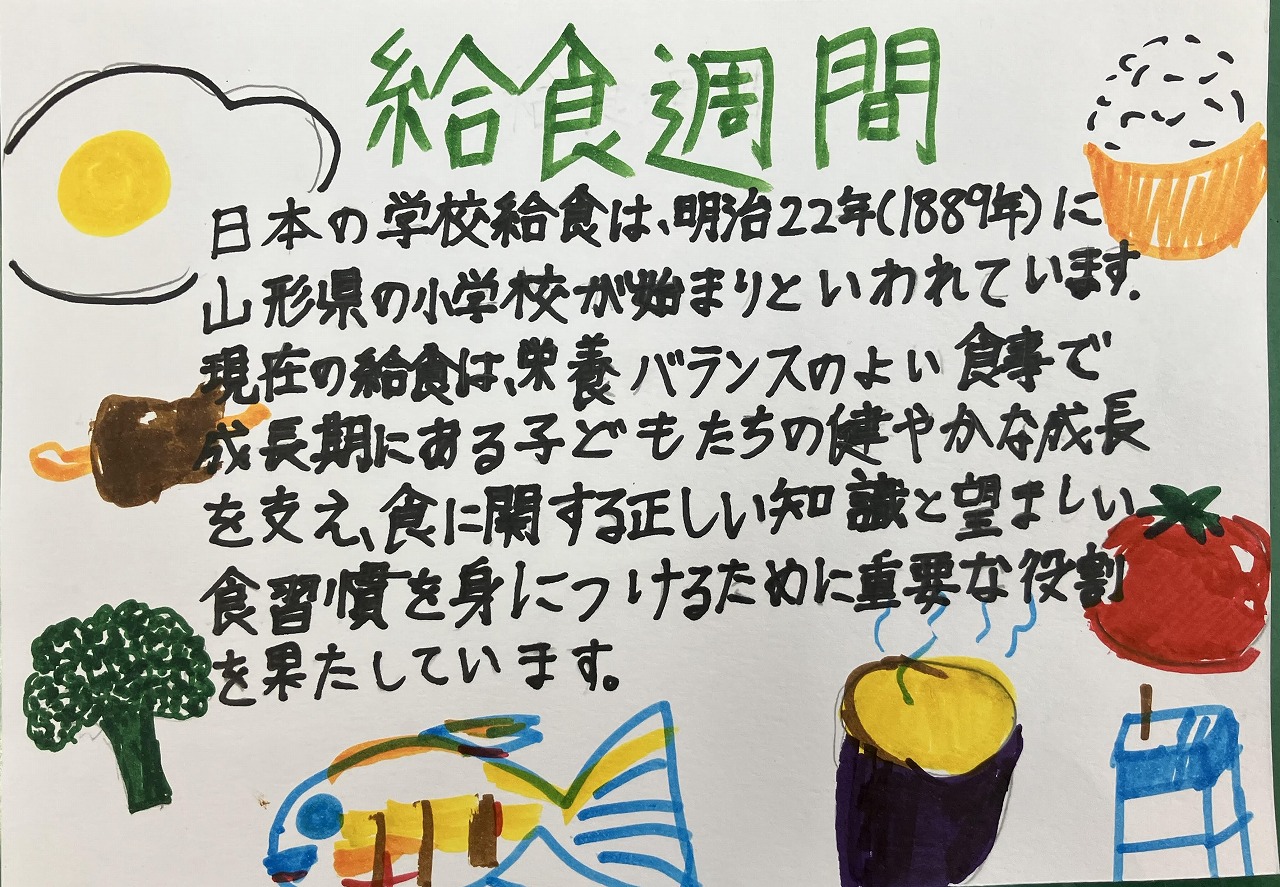 給食週間
日本の学校給食は、明治22年(1889年)に
山形県の小学校が始まりといわれています。
現在の給食は、栄養バランスのよい食事で
成長期にある子どもたちの健やかな成長
を支え、食に関する正しい知識と望ましい
食習慣を身につけるために重要な役割
を果たしています。